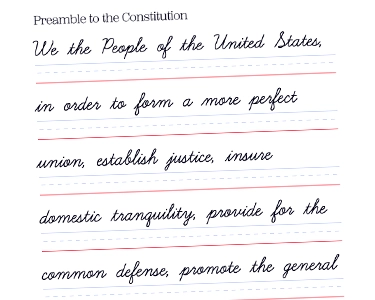 Preamble to the Constitution
We the People of the United States,
in order to form a more perfect
union, establish justice, insure
domestic tranquility, provide for the
common defense, promote the general